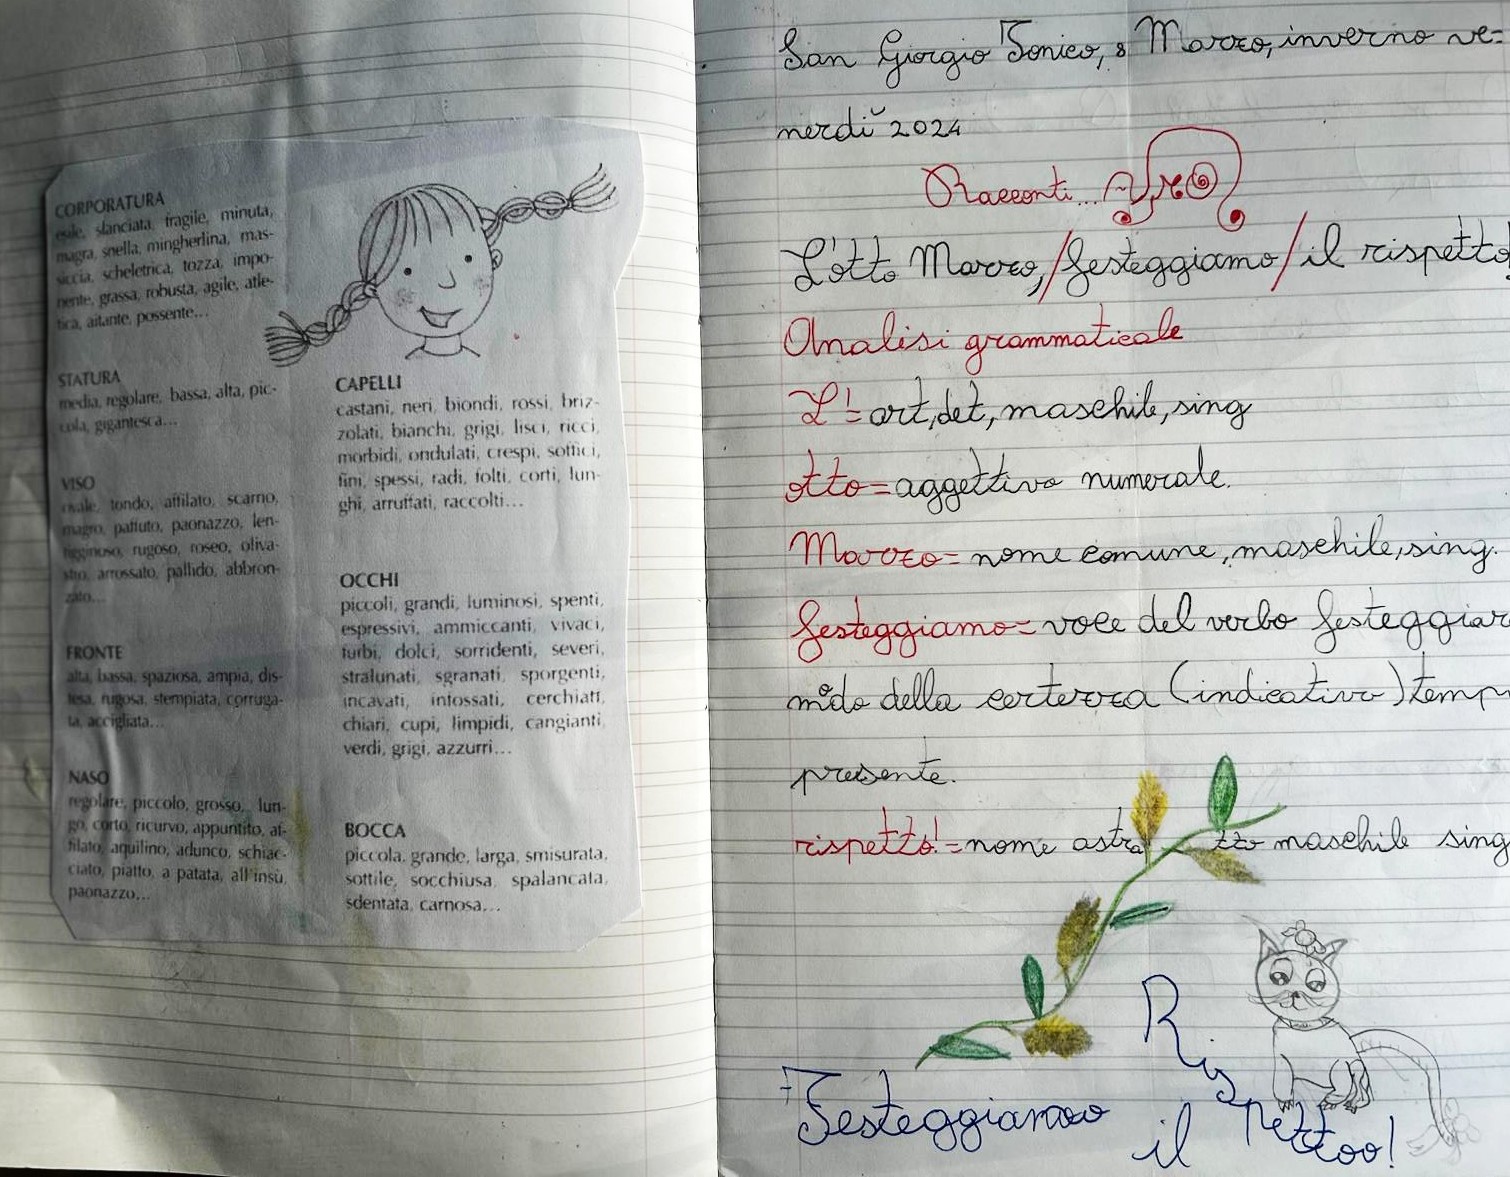 CORPORATURA
esile, slanciata, fragile, minuta,
magra, snella, mingherlina, mas-
siccia, scheletrica, tozza, impo-
nente, grassa, robusta, agile, atle-
tica, aitante, possente...
STATURA
media, regolare, bassa, alta, pic-
cola, gigantesca...
VISO
ovale, tondo, affilato, scarno,
magro, paffuto, paonazzo, len-
tigginoso, rugoso, roseo, oliva-
stro, arrossato, pallido, abbron-
zato...
FRONTE
alta, bassa, spaziosa, ampia, dis-
tesa, rugosa, stempiata, corruga-
ta, accigliata...
NASO
regolare, piccolo, grosso, lun-
go, corto, ricurvo, appuntito, af-
filato, aquilino, adunco, schiac-
ciato, piatto, a patata, all'insù,
paonazzo...
CAPELLI
castani, neri, biondi, rossi, briz-
zolati, bianchi, grigi, lisci, ricci,
morbidi, ondulati, crespi, soffici,
fini, spessi, radi, folti, corti, lun-
ghi, arruffati, raccolti...
OCCHI
piccoli, grandi, luminosi, spenti,
espressivi, ammiccanti, vivaci,
furbi, dolci, sorridenti, severi,
stralunati, sgranati, sporgenti,
incavati, infossati, cerchiati,
chiari, cupi, limpidi, cangianti
verdi, grigi, azzurri...
BOCCA
piccola, grande, larga, smisurata,
sottile, socchiusa, spalancata,
sdentata, carnosa...
San Giorgio Ionico, 8 Marzo, inverno ve=
nerdì 2024
Racconti...
L'otto Marzo,/festeggiamo/il rispetto!
Analisi grammaticale
L'= art, det, maschile, sing
otto= aggettivo numerale.
Marzo= nome comune, maschile, sing.
festeggiamo= voce del verbo festeggiar
modo della certezza (indicativo) temp
presente.
rispetto!= nome astratto maschile sing
Festeggiamoo
il
Rispettoo!